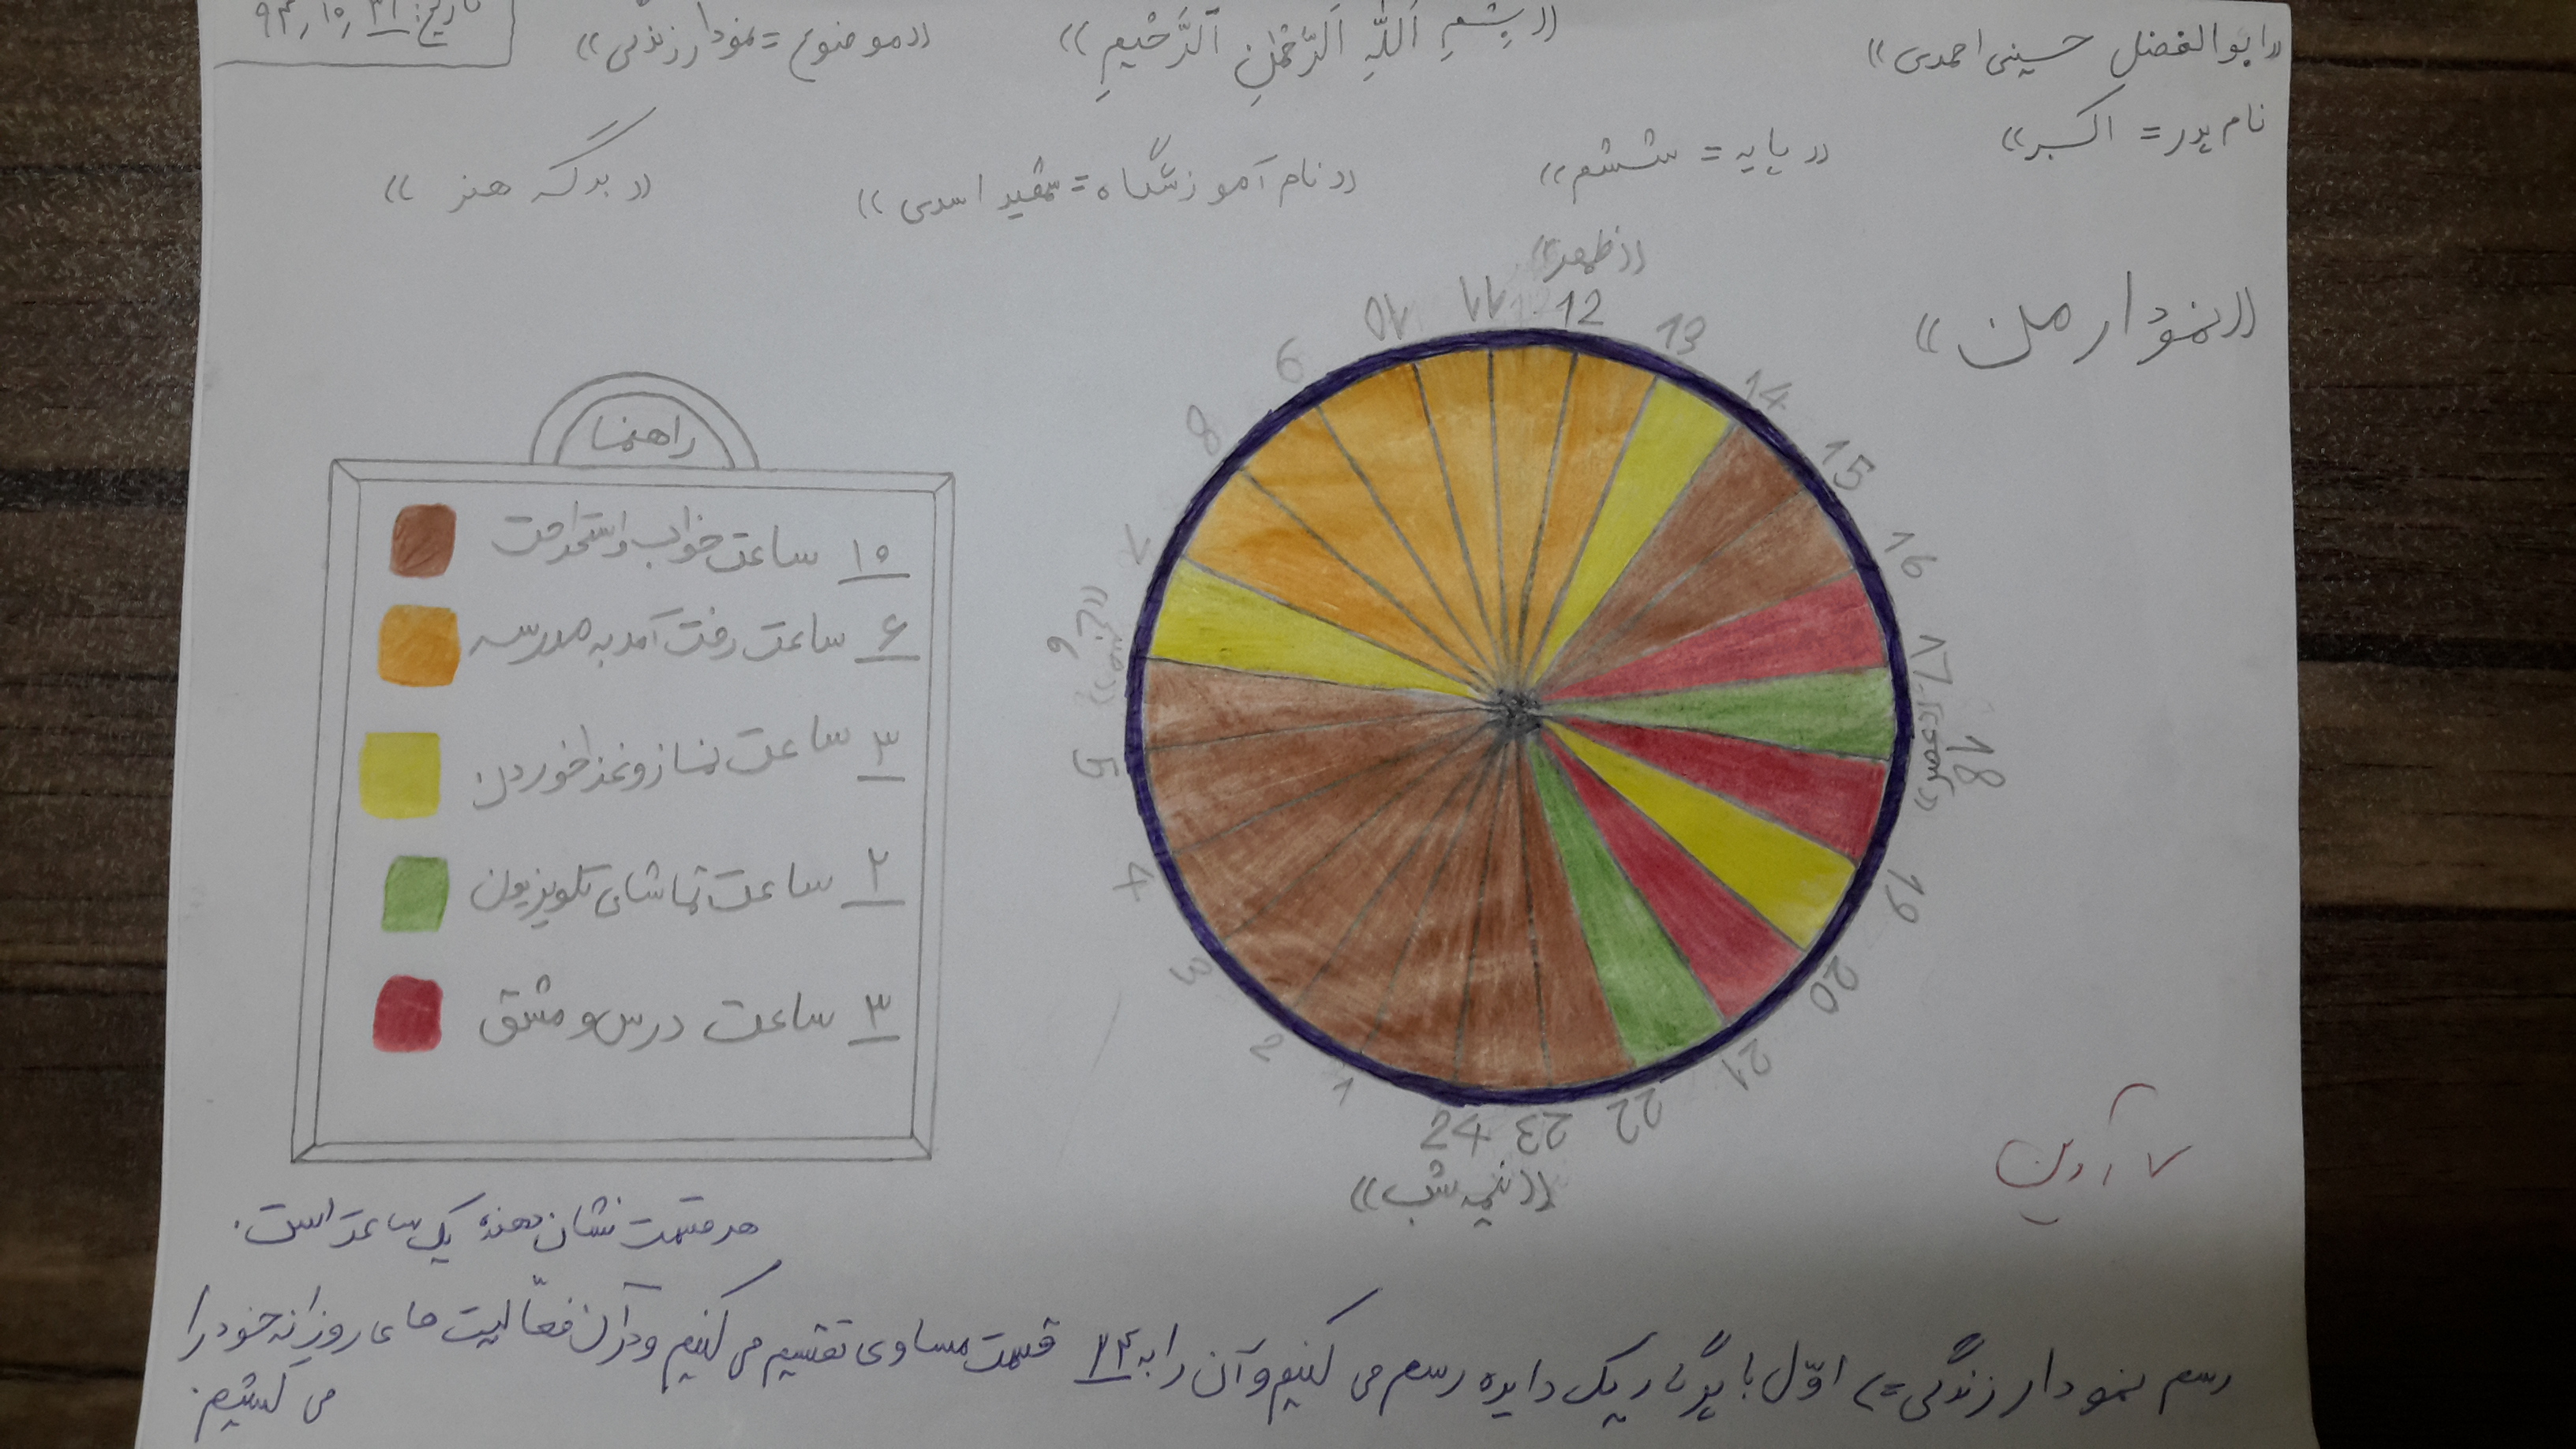 «ابوالفضل حسینی احمدی»
«بِسْمِ اَللّٰهِ اَلرَّحْمٰنِ اَلرَّحیٖمِ»
«موضوع = نمودار زندگی»
تاریخ: ۹۴,۱۰,۲۱
نام پدر = اکبر»
«پایه = ششم»
«نام آموزشگاه = شهید اسدی»
«برگه هنر»
«نمودار من»
«ظهر»
12
13
14
15
16
17
«عصر»
18
19
20
21
22
23
24
«نیمه شب»
1
2
3
4
5
6
«صبح»
7
8
9
10
11
راهنما
۱۰ ساعت خواب و استراحت
۶ ساعت رفت آمد به مدرسه
۳ ساعت نماز و غذا خوردن
۲ ساعت تماشای تلویزیون
۳ ساعت درس و مشق
هر قسمت نشان دهنده یک ساعت است.
رسم نمودار زندگی => اوّل با پرگار یک دایره رسم می کنیم و آن را به ۲۴ قسمت مساوی تقسیم می کنیم و در آن فعّالیت های روزانه خود را
می کشیم.